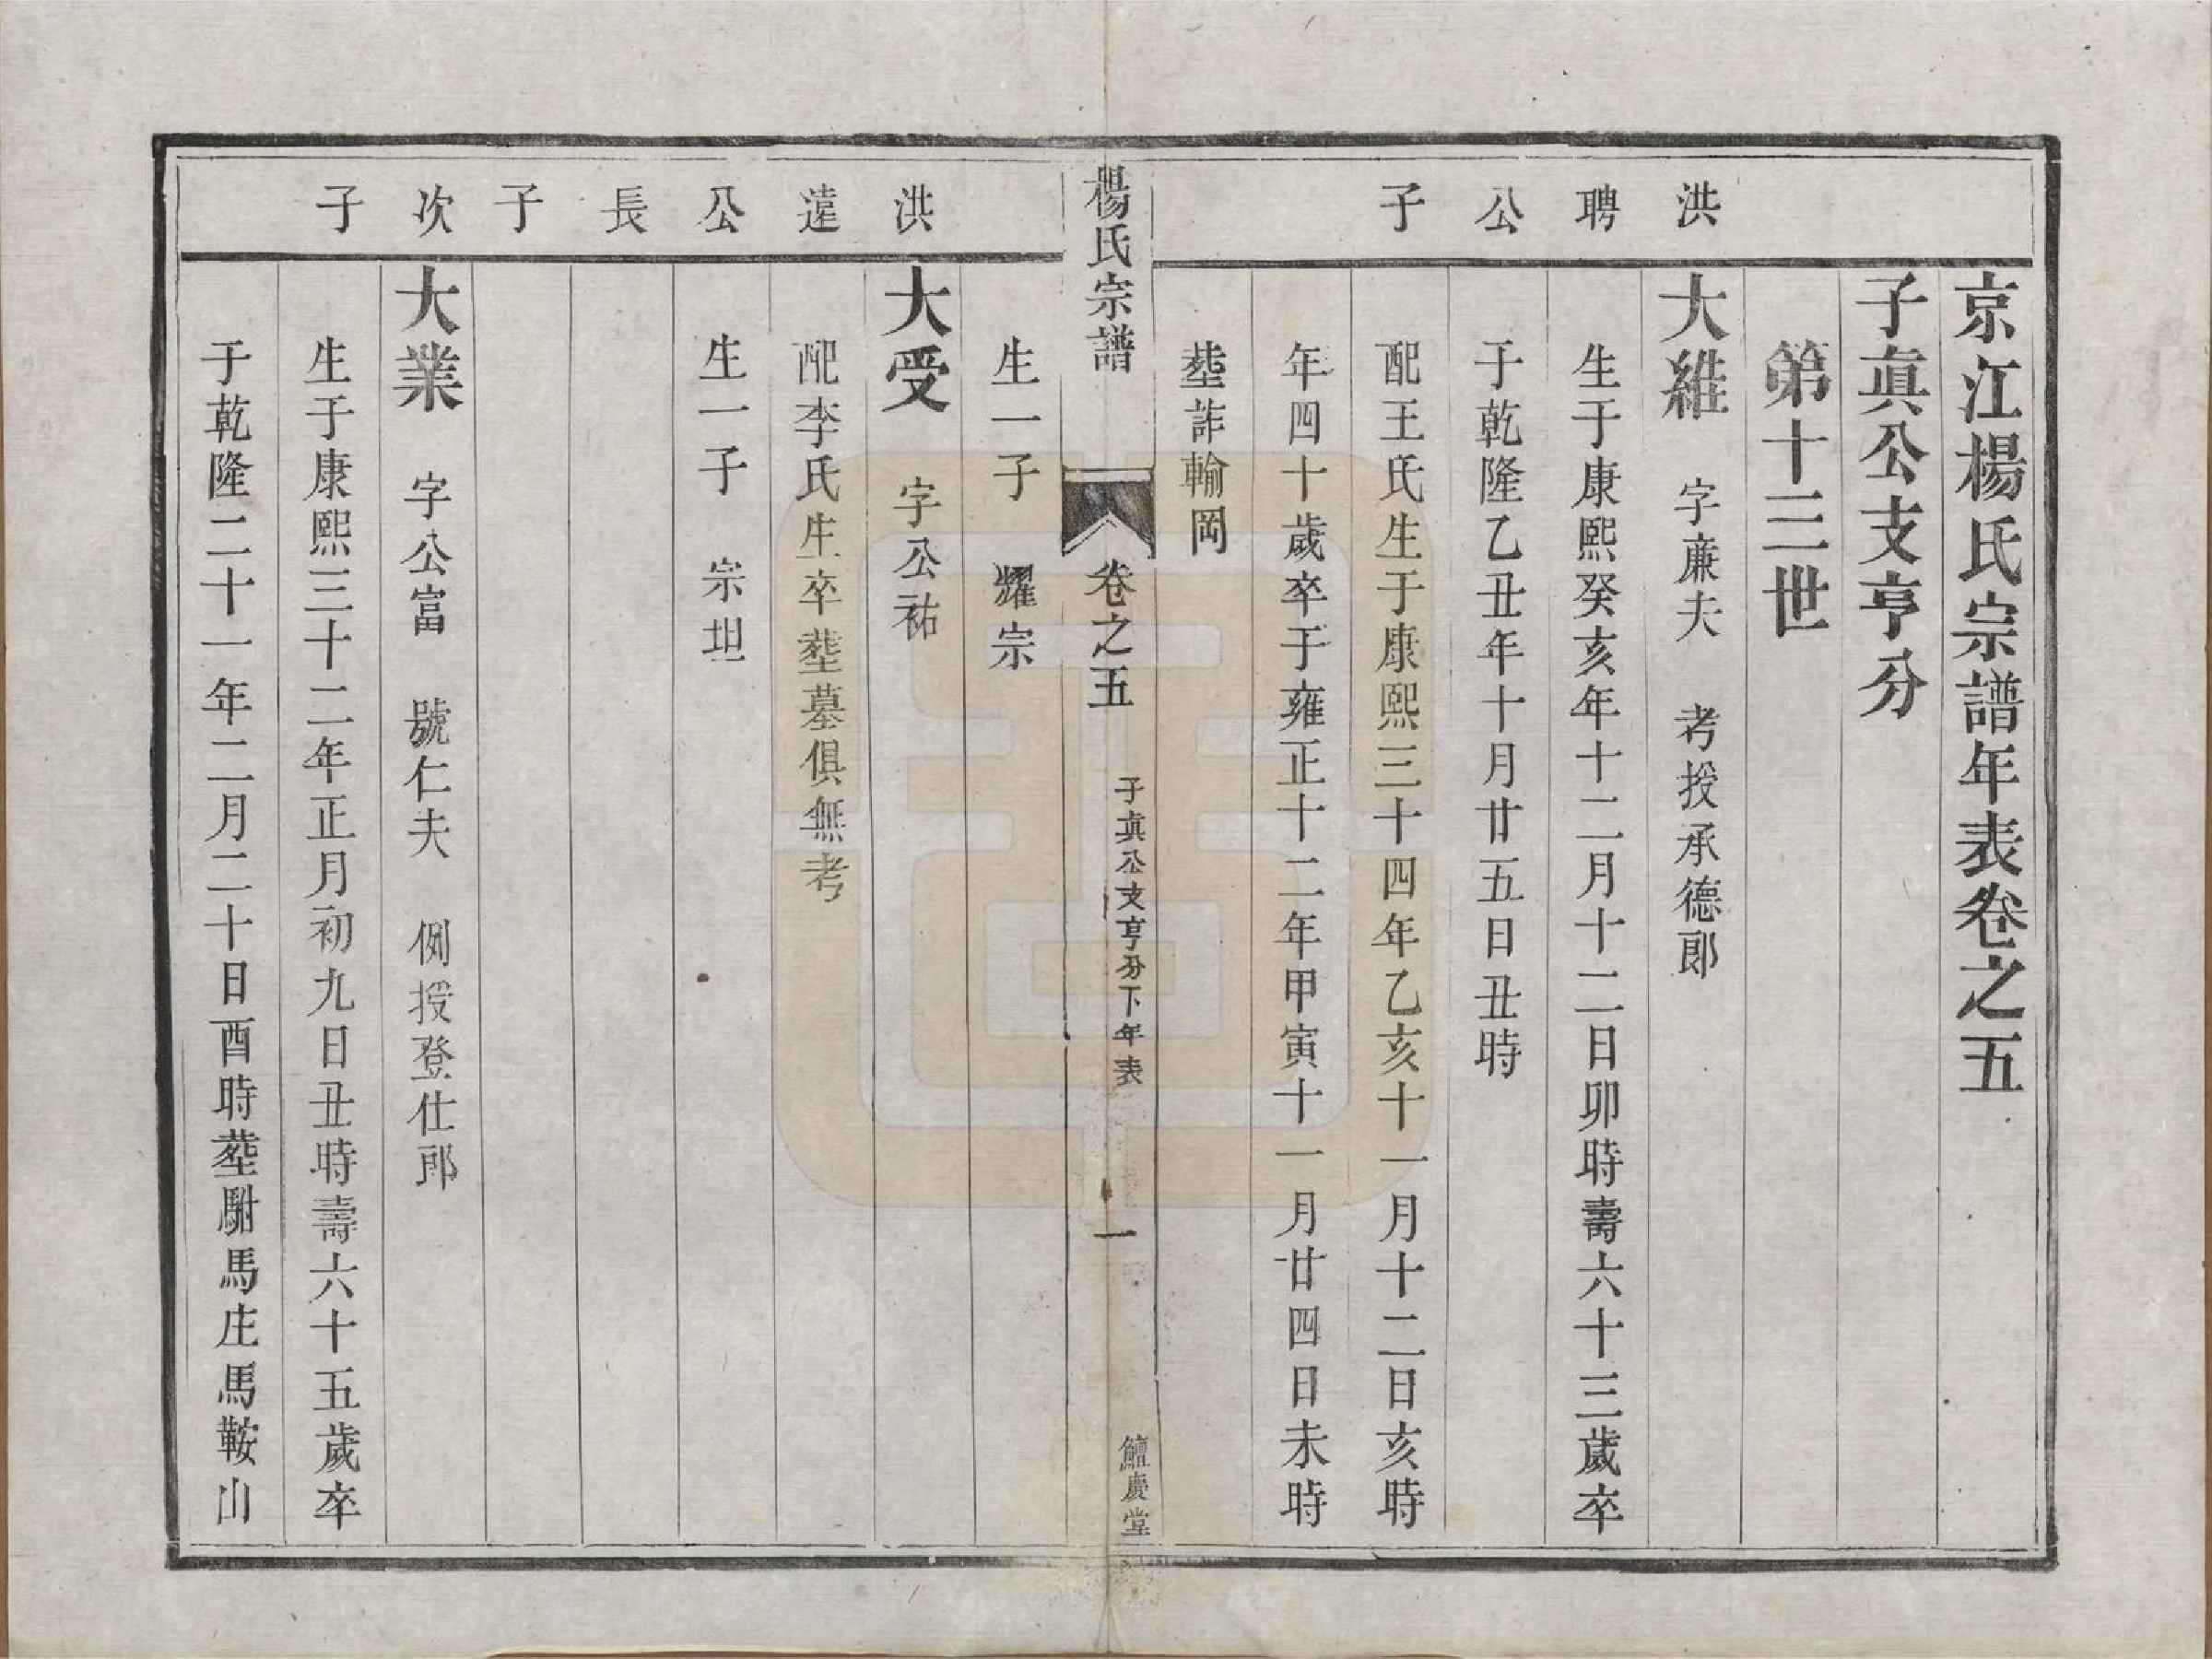 京江楊氏宗譜年表卷之五
子眞公支亨分
第十三世
洪聘公子
大維　字廉夫　考授承德郎
生于康熙癸亥年十二月十二日卯時壽六十三歲卒
于乾隆乙丑年十月廿五日丑時
配王氏生于康熙三十四年乙亥十一月十二日亥時
年四十歲卒于雍正十二年甲寅十一月廿四日未時
塟詐輸岡
楊氏宗譜　卷之五　子眞公支亨分下年表　一　鱣慶堂
生一子　耀宗
洪遠公長子
大受　字公祐
配李氏生卒塟墓俱無考
生一子　宗坦
次子
大業　字公富　號仁夫　例授登仕郎
生于康熙三十二年正月初九日丑時壽六十五歲卒
于乾隆二十一年二月二十日酉時塟駙馬庄馬鞍山